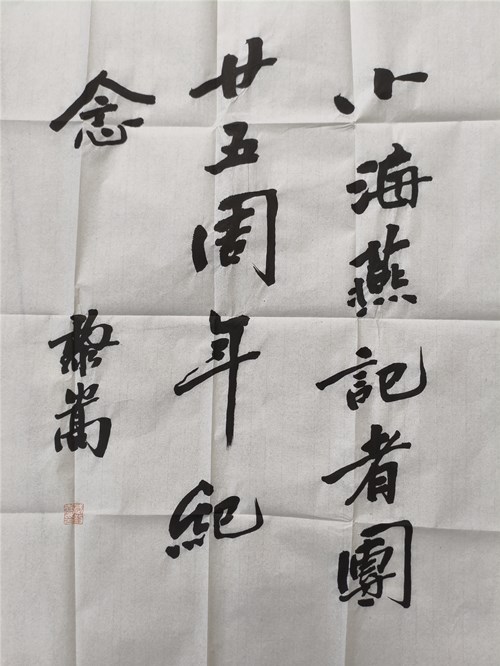 小海燕記者團
廿五周年紀
念
嵩